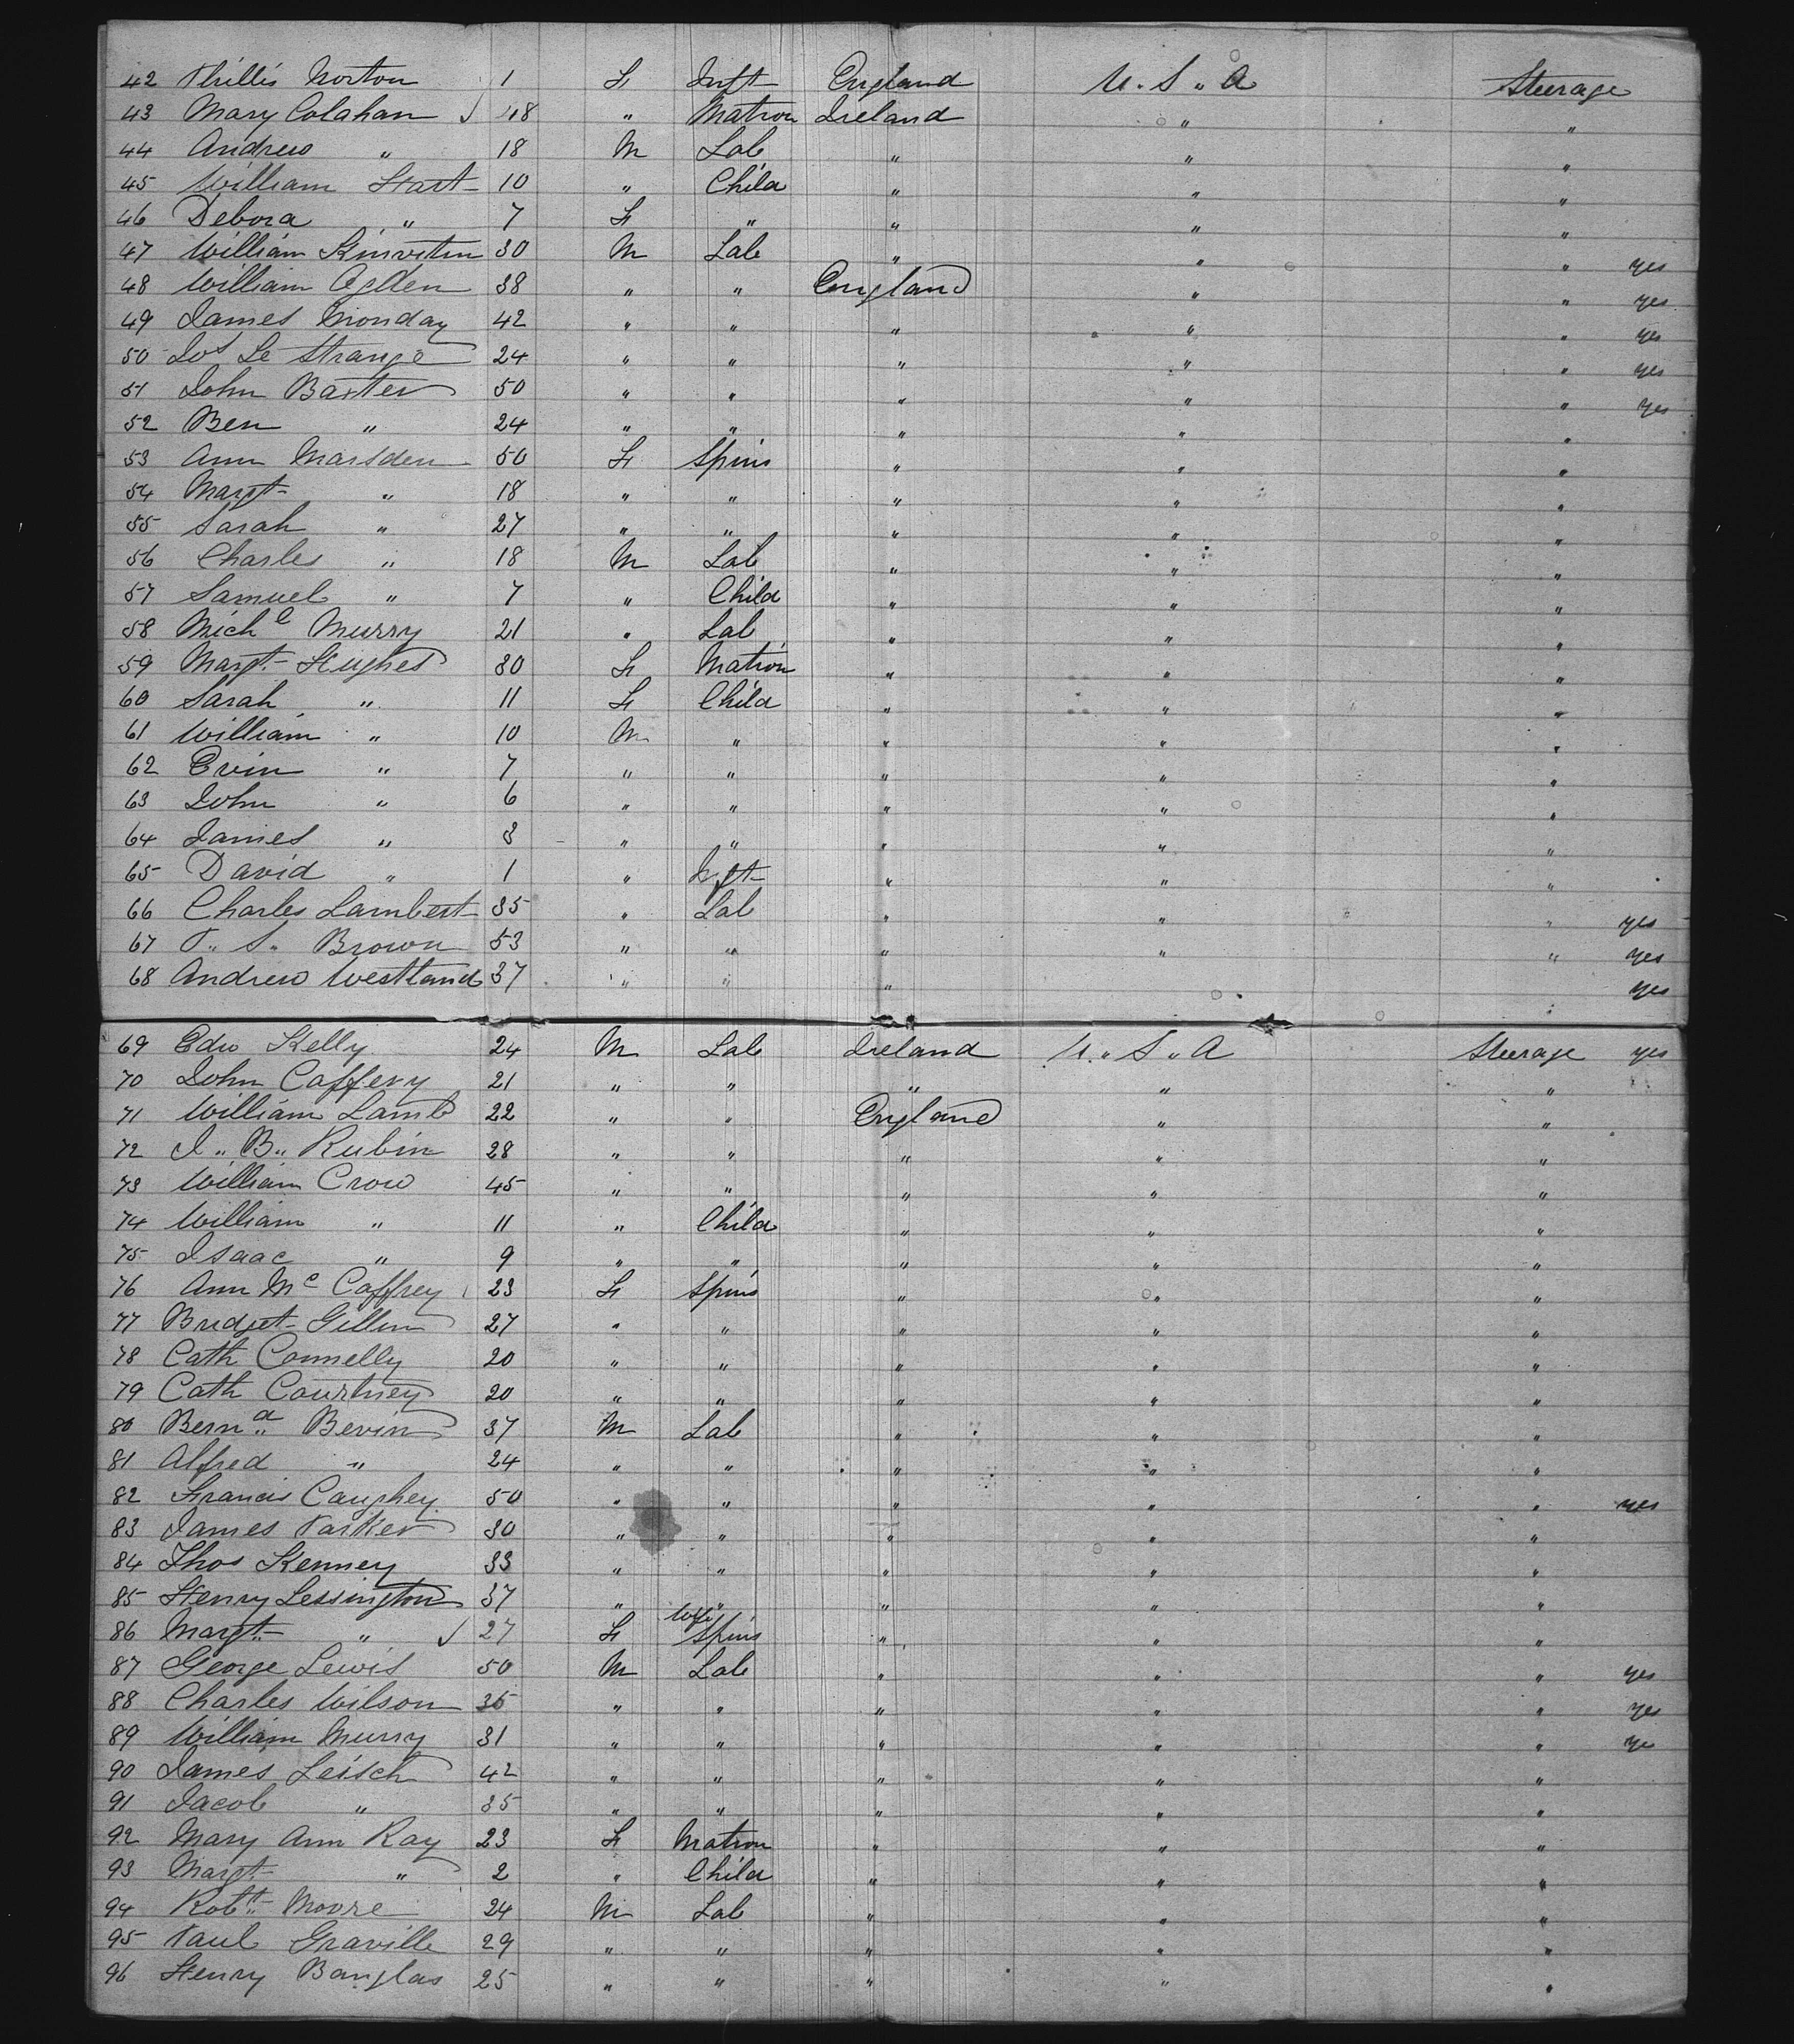 42 Phillis Norton 1 F Inft England U. S. A Steerage
43 Mary Colahan ✓ 48 " Matron Ireland " "
44 Andrew " 18 M Lab " " "
45 William Hart 10 " Child " " "
46 Debora " 7 F " " " "
47 William 30 M Lab " " " yes
48 William Ogden 38 " " England " " yes
49 James Monday 42 " " " " " yes
50 Jos Le Strange 24 " " " " " yes
51 John Baxter 50 " " " " " yes
52 Ben " 24 " " " " "
53 Ann Marsden 50 F Spins " " "
54 Margt " 18 " " " " "
55 Sarah " 27 " " " " "
56 Charles " 18 M Lab " " "
57 Samuel " 7 " Child " " "
58 Michl Murry 21 " Lab " " "
59 Margt Hughes 30 F Matron " " "
60 Sarah " 11 F Child " " "
61 William " 10 M " " " "
62 Evin " 7 " " " " "
63 John " 6 " " " " "
64 James " 3 " " " " "
65 David " 1 " Inft " " "
66 Charles Lambert 35 " Lab " " " yes
67 T. S. Brown 53 " " " " " yes
68 Andrew Westland 37 " " " " yes
69 Edw Kelly 24 M Lab Ireland U. S. A Steerage yes
70 John Caffery 21 " " " " "
71 William Lamb 22 " " England " "
72 J. B. Rubin 28 " " " " "
73 William Crow 45 " " " " "
74 William " 11 " Child " " "
75 Isaac " 9 " " " " "
76 Ann Mc Caffrey 23 F Spins " " "
77 Bridget Gillen 27 " " " " "
78 Cath Connelly 20 " " " " "
79 Cath Courtney 20 " " " " "
80 Bernd Bevin 37 M Lab " " "
81 Alfred " 24 " " " " "
82 Francis Caughey 50 " " " " " yes
83 James Parker 30 " " " " "
84 Thos Kenney 33 " " " " "
85 Henry Lessington 37 " " " " "
86 Margt " ✓ 27 F wife Spins " " "
87 George Lewis 50 M Lab " " " yes
88 Charles Wilson 36 " " " " " yes
89 William Murry 31 " " " " " ye
90 James Leisch 42 " " " " "
91 Jacob " 35 " " " " "
92 Mary Ann Ray 23 F Matron " " "
93 Margt " 2 " Child " " "
94 Robt Moore 24 M Lab " " "
95 Paul Graville 29 " " " " "
96 Henry Banglas 25 " " " " "